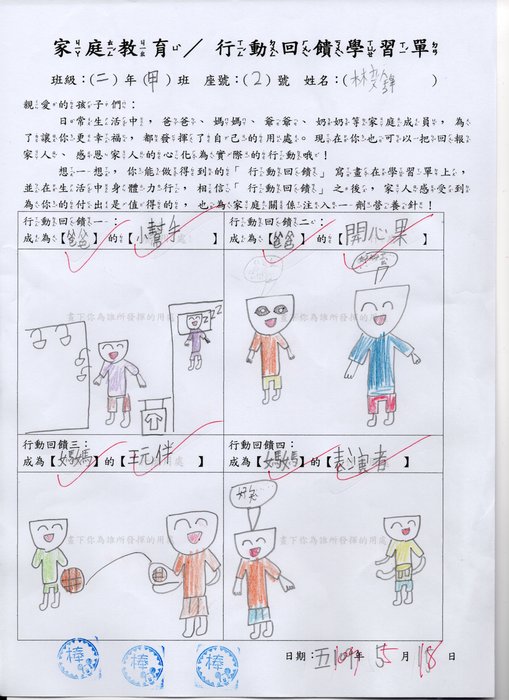 家庭教育／行動回饋學習單
班級：(二)年(甲)班 座號：(2)號 姓名：(林奕鋒)
親愛的孩子們：
日常生活中，爸爸、媽媽、爺爺、奶奶等家庭成員，為
了讓你更幸福，都發揮了自己的用處。現在你也可以把回報
家人、感恩家人的心化為實際的行動哦！
想一想，你能做得到的「行動回饋」寫畫在學習單上，
並在生活中身體力行，相信「行動回饋」之後，家人感受到
為你的付出是值得的，也為家庭關係注入一劑營養針！
行動回饋一：
成為【爸爸】的【小幫手】
行動回饋二：
成為【爸爸】的【開心果】
畫下你為誰所發揮的用處
ZZZ
畫下你為誰所發揮的用處
行動回饋三：
成為【媽媽】的【玩伴】
行動回饋四：
成為【媽媽】的【表演者】
好笑
畫下你為誰所發揮的用處
畫下你為誰所發揮的用處
棒 棒 棒
日期：109年5月18日